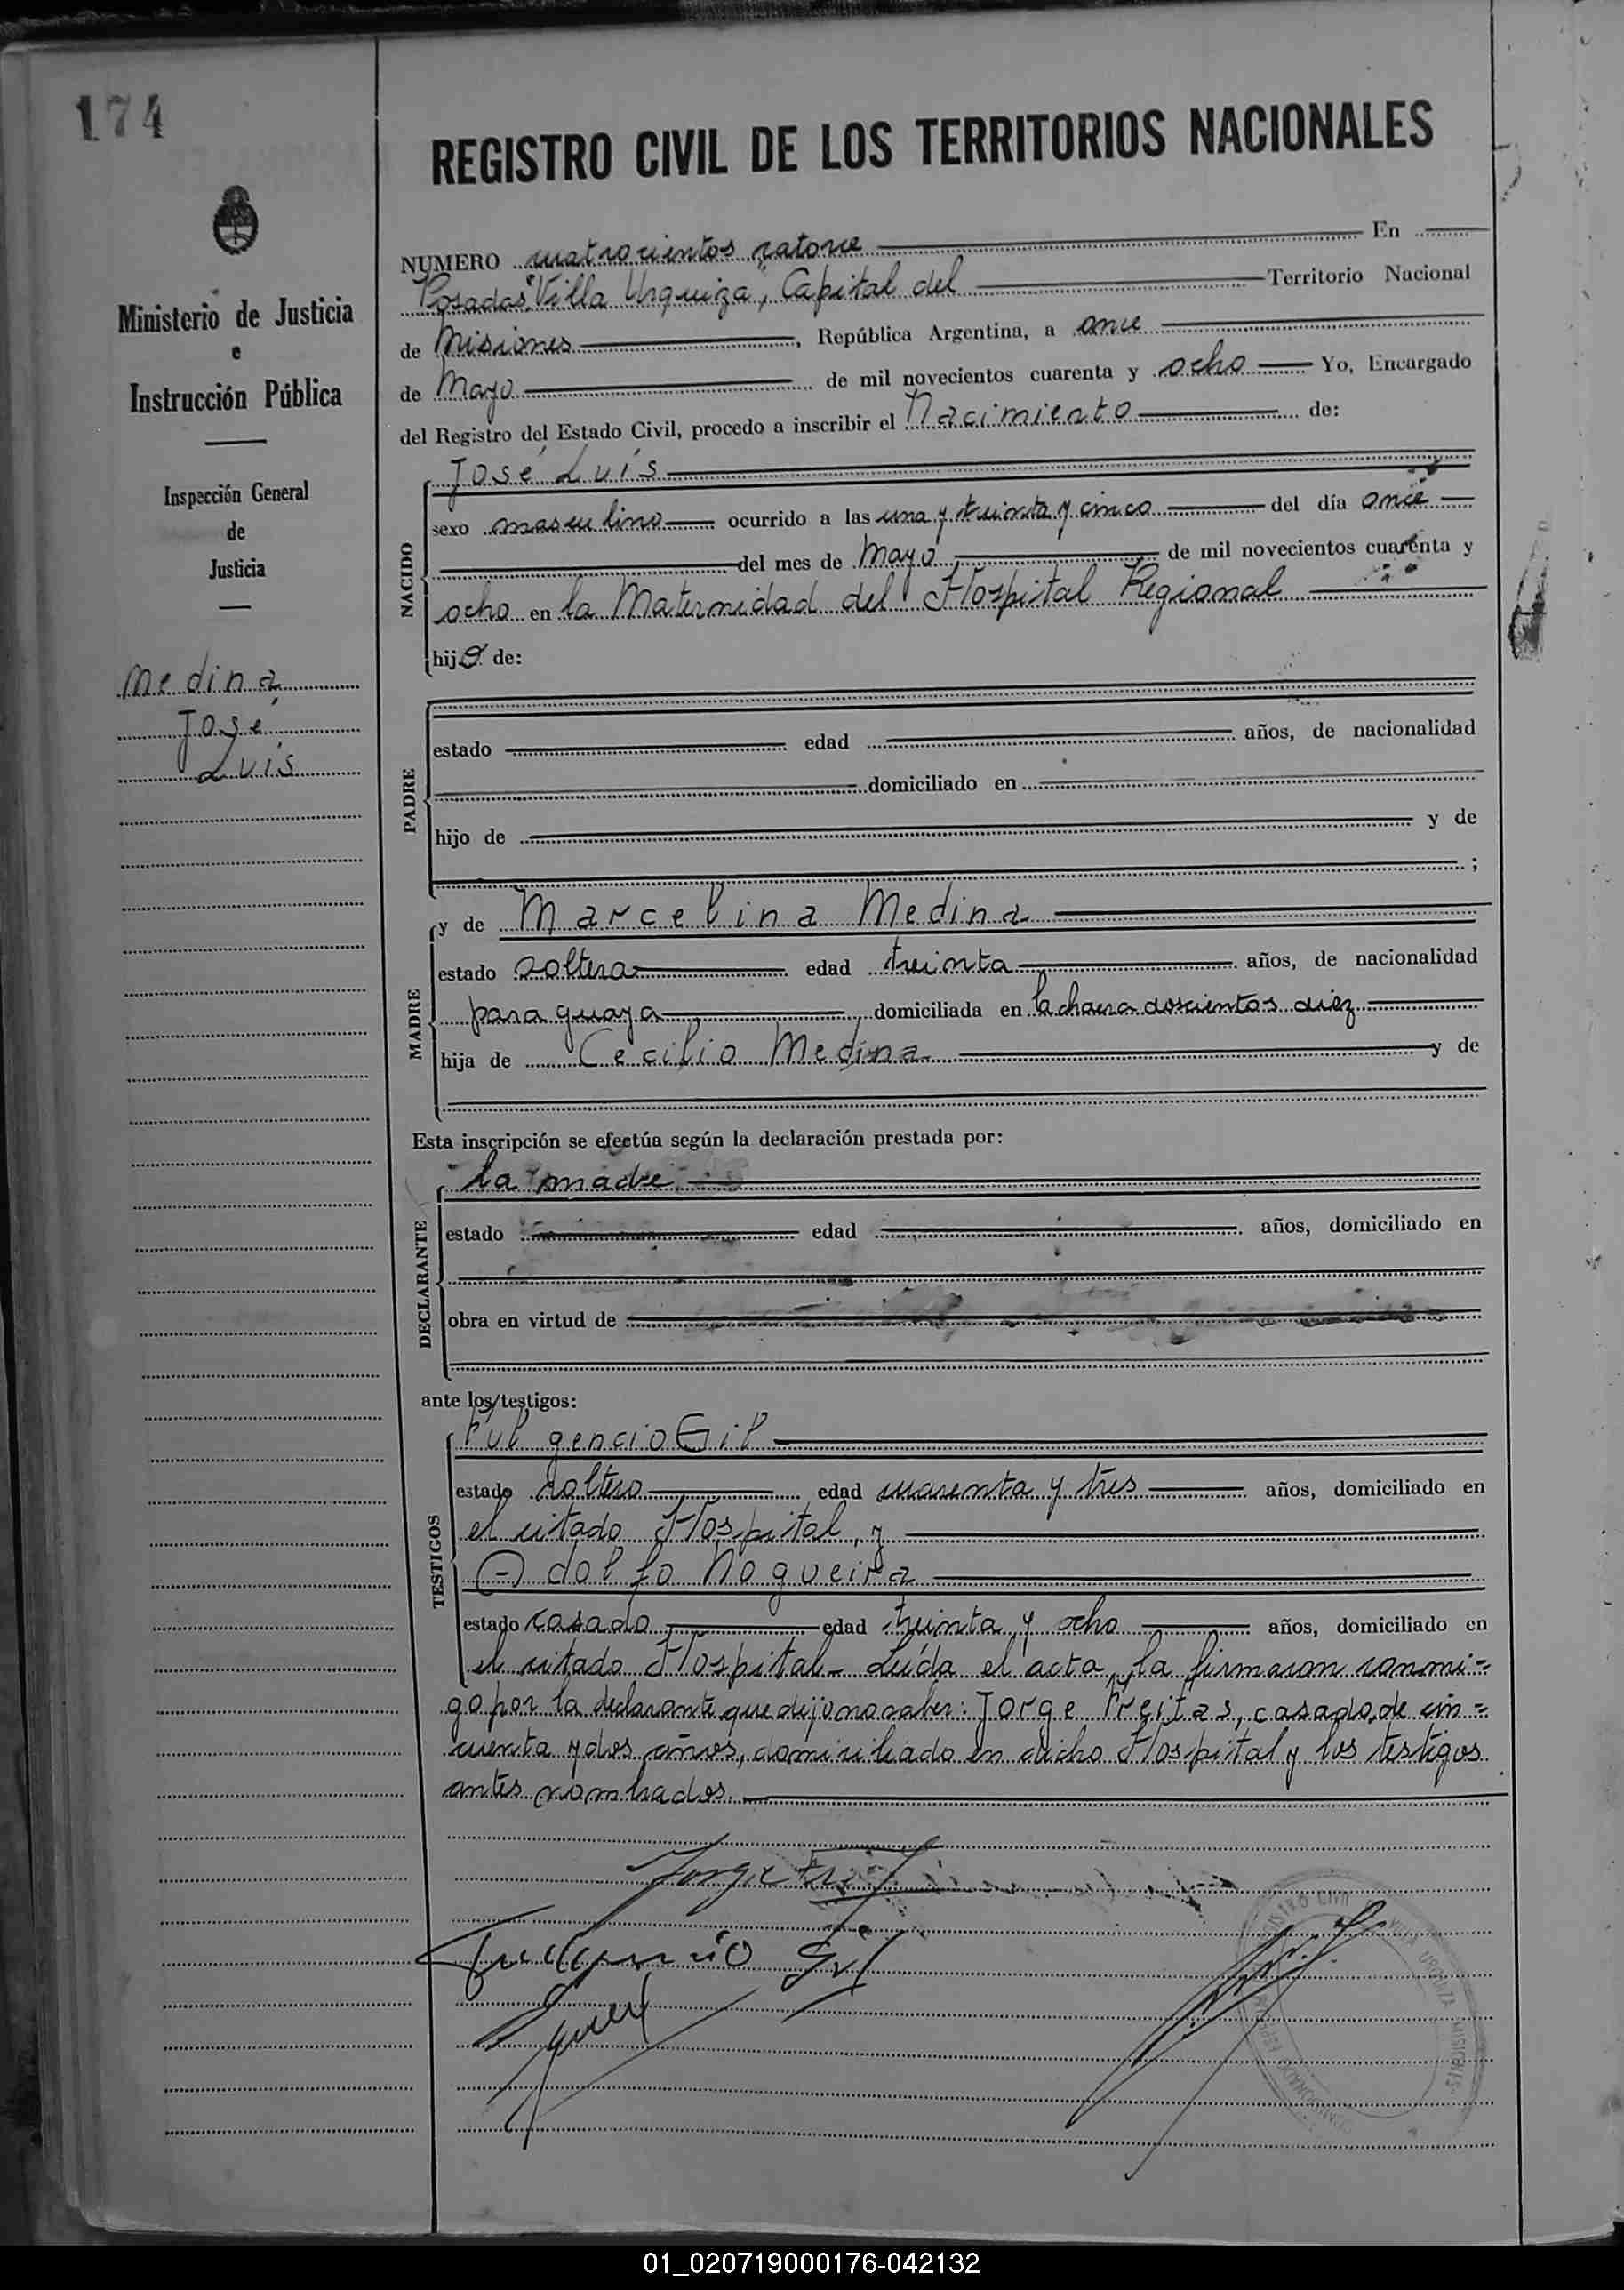 174
REGISTRO CIVIL DE LOS TERRITORIOS NACIONALES
Ministerio de Justicia
e
Instrucción Pública
Inspección General
de
Justicia
Medina
José
Luis
NUMERO cuatrocientos catorce En
Posadas "Villa Urquiza", Capital del Territorio Nacional
de Misiones, República Argentina, a once
de Mayo de mil novecientos cuarenta y ocho Yo, Encargado
del Registro del Estado Civil, procedo a inscribir el Nacimiento de:
NACIDO
José Luis
sexo masculino ocurrido a las una y treinta y cinco del día once
del mes de Mayo de mil novecientos cuarenta y
ocho en la Maternidad del Hospital Regional
hijo de:
PADRE
estado edad años, de nacionalidad
domiciliado en
hijo de y de
;
MADRE
y de Marcelina Medina
estado soltera edad treinta años, de nacionalidad
paraguaya domiciliada en la chacra doscientos diez
hija de Cecilio Medina y de
Esta inscripción se efectúa según la declaración prestada por:
DECLARANTE
la madre
estado edad años, domiciliado en
obra en virtud de
ante los testigos:
TESTIGOS
Fulgencio Gil
estado soltero edad cuarenta y tres años, domiciliado en
el citado Hospital, y
Adolfo Nogueira
estado casado edad treinta y ocho años, domiciliado en
el citado Hospital- Leída el acta, la firmaron conmi=
go por la declarante que dijo no saber: Jorge Freitas, casado, de cin=
cuenta y dos años, domiciliado en dicho Hospital y los testigos
antes nombrados.
Jorge
Fulgencio Gil
REGISTRO CIVIL VILLA URQUIZA MISIONES
01_020719000176-042132